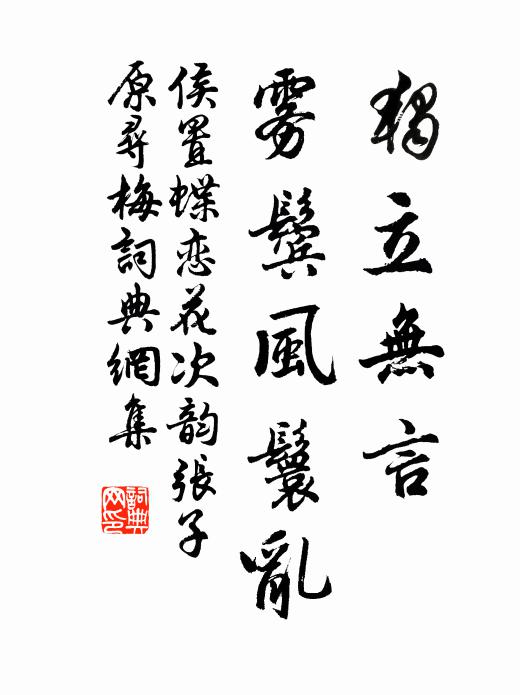 獨立無言
霧鬢風鬟亂
侯置蝶恋花次韵張子
原尋梅詞典網集
詞典
网印